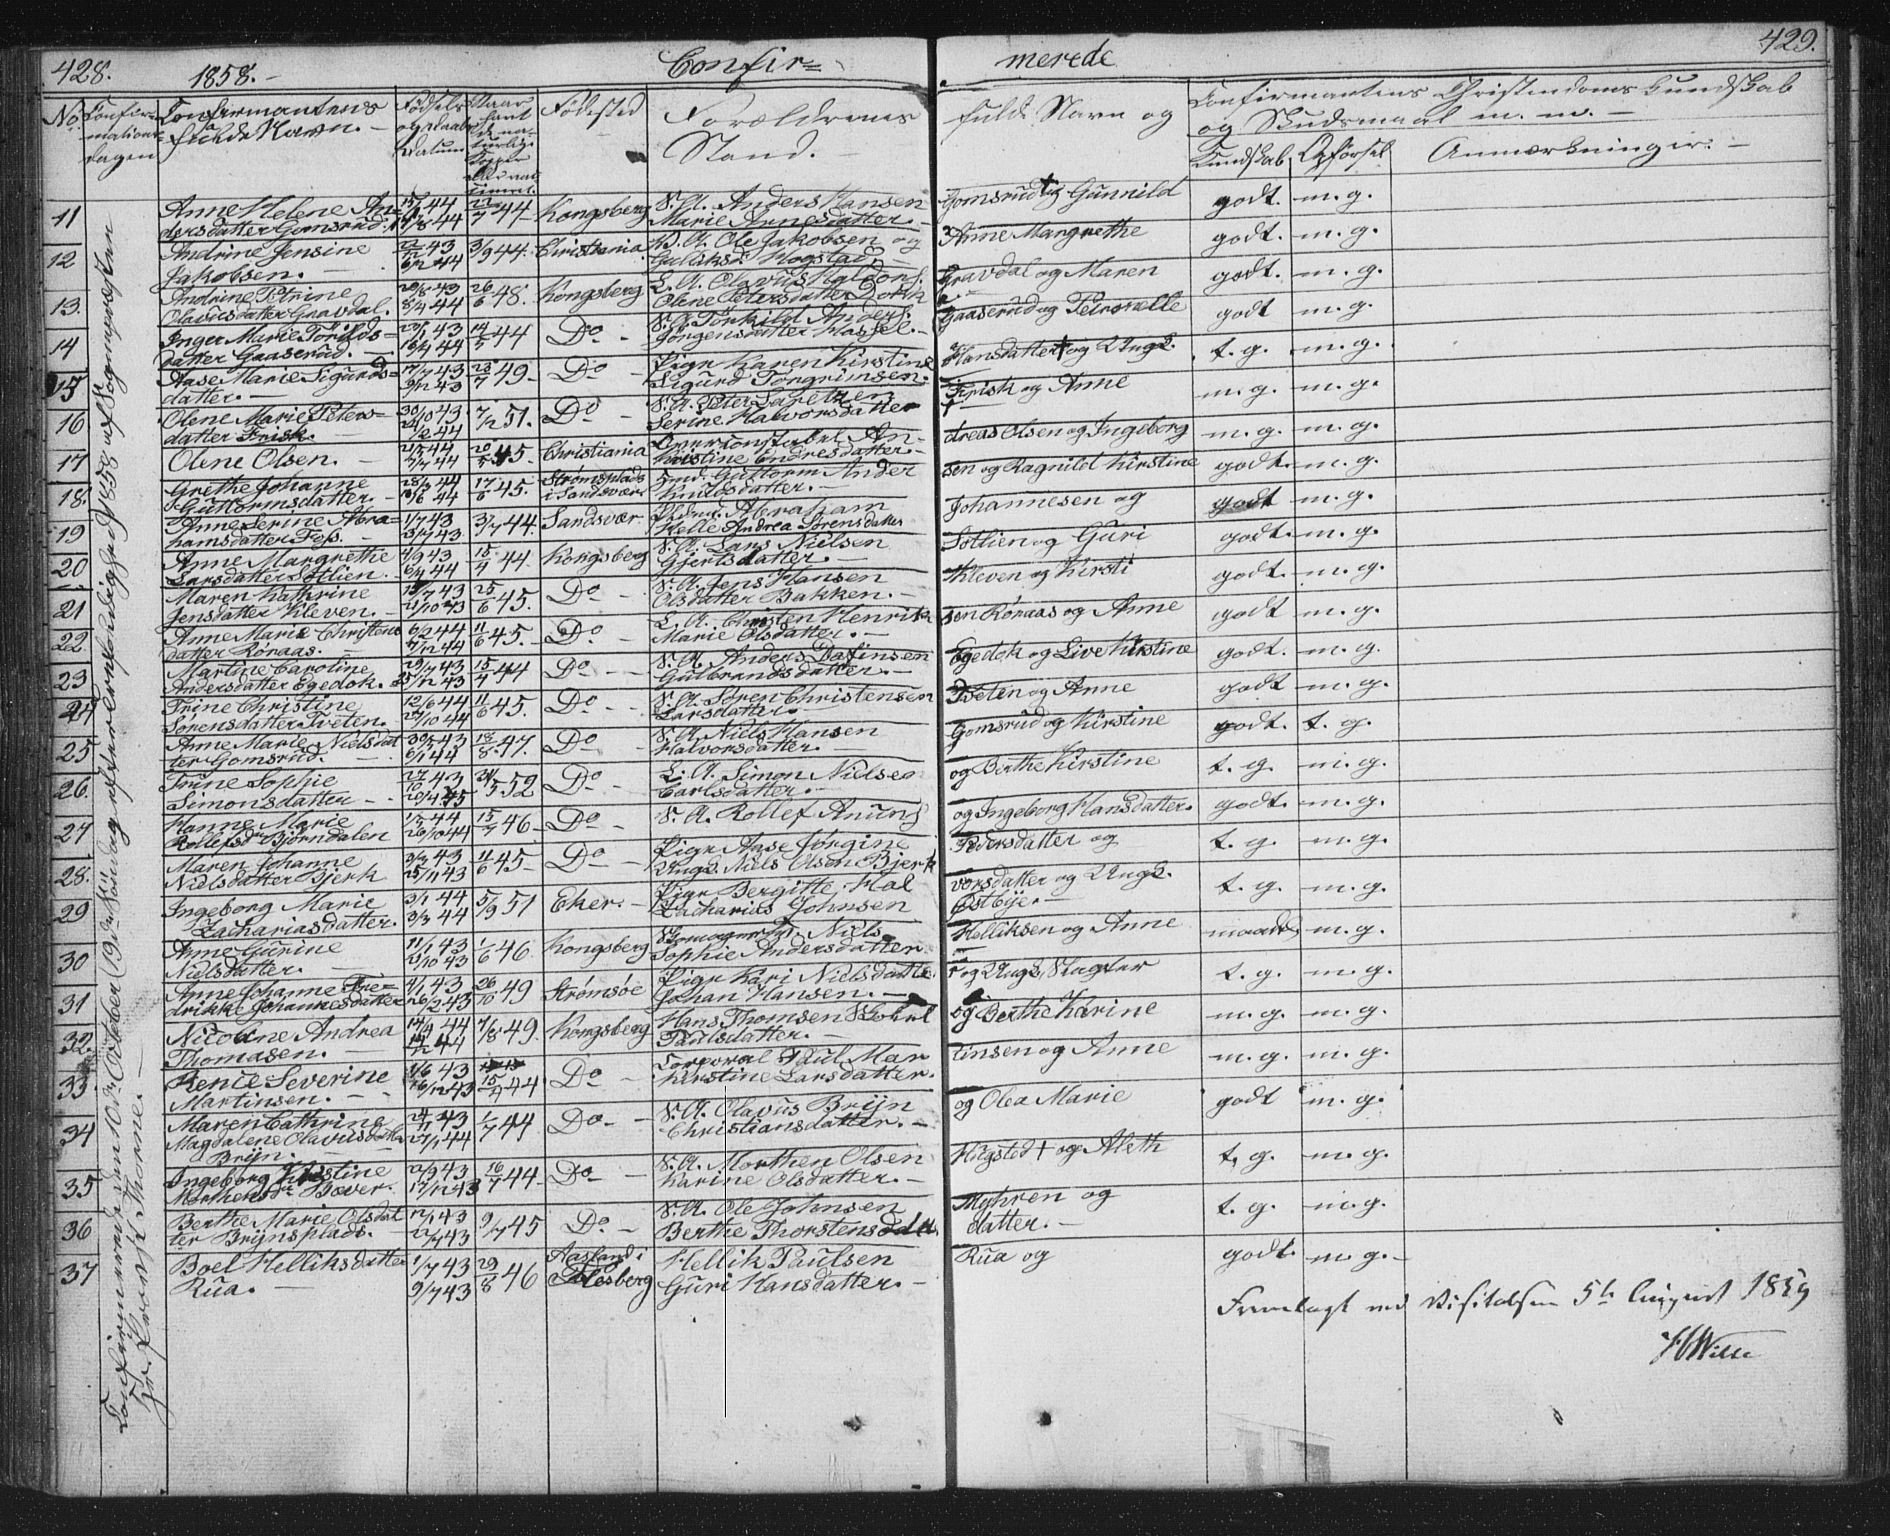 428.
1858.
Confir=
merede
429.
No.
Confir=
mations=
dagen
Confirmantens
fulde Navn.
Fødsels
og Daabs
Datum
Naar
havt
de na-
turlige
Kopper
eller vac-
cineret.
Fødested
Forældrenes
Stand.
fulde Navn og
Confirmantens Christendoms Kundskab
og Skudsmaal m. m.
Kundskab
Opførsel
Anmærkninger.
Confirmerende den 10de October (19de Søndag efter Trefoldighed) 1858 af Sognepræsten
Hr. Provst Thorne.
11 Anne Helene An= 15/7 44 22/7 44 Kongsberg S. A. Anders Hansen Gomsrud† og Gunnild godt. m. g.
dersdatter Gomsrud. 11/8 44 Marie Arnesdatter.
12 Andrine Jensine 22/12 43 3/9 44. Christiania B. A. Ole Jakobsen og Anne Margrethe godt. m. g.
Jakobsen. 6/2 44 Guliksd. Hogstad
13. Andrine Petrine 20/8 43 26/6 48. Kongsberg L. A. Olavus Haldors. Gravdal og Maren godt. m. g.
Olavusdatter Gravdal. 8/4 44 Olene Petersdatter Dokk
14 Inger Marie Torkilds= 20/1 43 14/5 44 Do S. A. Torkild Anders. Gaaserud og Petronelle godt m. g.
datter Gaaserud. 16/4 44 Jørgensdatter Hassel.
15 Aase Marie Sigurds= 17/7 43 23/7 49. Do Pige Karen Kirstine Hansdatter† og Ungk. t. g. m. g.
datter. 9/12 43 Sigurd Torgrimsen.
16 Olene Marie Peters= 30/10 43 7/2 51. Do S. A. Peter Laretzen Frisk og Anne m. g. m. g.
datter Frisk. 24/2 44 Serine Halvorsdatter
17 Olene Olsen. 21/5 44 20/5 45. Christiania Overconstabel An- dreas Olsen og Ingeborg m. g. m. g.
7/7 44 Kristine Endresdatter.
18. Grethe Johanne 28/3 44 17/6 45. Strømsplads Hmd. Guttorm Ander sen og Ragnild Kirstine godt. m. g.
Guttormsdatter. 3/6 44 i Sandsvær Knudsdatter.
19 Anne Serine Abra= 1/7 43 3/7 44. Sandsvær Plmd. Abraham Johannesen og godt m. g.
hamsdatter Fess. 31/7 43 Helle Andrea Sørensdatter
20 Anne Margrethe 4/9 43 18/4 44. Kongsberg S. A. Lars Nielsen Sotlien og Guri godt. m. g.
Larsdatter Sotlien. 6/4 44 Gjertsdatter.
21 Maren Kathrine 13/7 43 25/6 45. Do S. A. Jens Hansen Kleven og Kirsti godt. m. g.
Jensdatter Kleven. 21/10 43 Olsdatter Bakken.
22. Anne Marie Christens 6/2 44 11/6 45. Do L. A. Christen Henrik sen Røraas og Anne godt m. g.
datter Røraas. 7/12 44 Marie Olsdatter.
23 Martine Caroline 29/7 43 15/4 44 Do S. A. Anders Dafinsen Egedok og Live Kirstine godt. m. g.
Andersdatter Egedok. 25/12 43 Gulbrandsdatter.
24 Trine Christine 12/6 44 11/6 45. Do S. A. Søren Christensen Tveten og Anne godt m. g.
Sørensdatter Tveten. 27/10 44 Larsdatter.
25 Anne Marie Nielsdat 30/3 43 18/8 47. Do S. A. Niels Hansen Gomsrud og Kirstine godt. t. g.
ter Gomsrud. 6/1 44 Halvorsdatter.
26. Trine Sophie 27/10 43 31/5 52 Do L. A. Simon Nielsen og Berthe Kirstine t. g. m. g.
Simonsdatter 20/4 45 Carlsdatter.
27 Hanne Marie 1/5 44 15/7 46 Do S. A. Rollef Anung og Ingeborg Hansdatter. godt. m. g.
Rollefsdr. Bjørndalen 26/10 44
28. Maren Johanne 2/3 43 4/6 45 Do Pige Aase Jørgine Pedersdatter og t. g. m. g.
Nielsdatter Bjerk 25/11 43 Ungk. Niels Olsen Bjerk
29 Ingeborg Marie 3/1 44 5/9 51 Eker. Pige Bergitte Hal vorsdatter og Ungk. t. g. m. g.
Zachariasdatter. 3/3 44 Zacharias Johnsen Østbye.
30 Anne Gurine 11/1 43 1/6 46 Kongsberg Niels Helliksen og Anne maadel. m. g.
Nielsdatter. 23/10 43 Sophie Andersdatter
31 Anne Johanne Fre= 4/1 43 26/10 49 Strømsøe Pige Kari Nielsdatte r og Ungk. Slagter t. g. m. g.
drikke Johannesdatter 26/2 43 Johan Hansen.
32. Nicoline Andrea 14/4 44 7/8 49. Kongsberg Hans Thomsen og Berthe Karine m. g. m. g.
Thomasen. 14/7 44 Paulsdatter.
33. Rence Severine 1/6 43 15/7 44 Do Corporal Paul Mar tinsen og Anne m. g. m. g.
Martinsen. 16/12 43 Kirstine Larsdatter.
34 Maren Cathrine 24/11 43 1/7 44 Do S. A. Olavus Brijn og Olea Marie godt m. g.
Magdalene Olavusdatter 27/1 44 Christiansdatter.
Brijn.
35 Ingeborg Kirstine 21/9 43 16/7 44 Do S. A. Morthen Olsen Higsted† og Aleth t. g. m. g.
Morthensdr. Bæver. 17/12 43 Karine Olsdatter.
36 Berthe Marie Olsdat 12/1 43 9/7 45 Do S. A. Ole Johnsen Myhren og t. g. m. g.
ter Brijnsplads. 2/7 43 Berthe Thorstens datter.
37 Boel Helliksdatter 1/7 43 29/8 46 Aasland i Hellik Paulsen Rua og godt. m. g.
Rua. 9/7 43 Flesberg Guri Hansdatter.
Fremlagt ved Visitatsen 5te August 1859